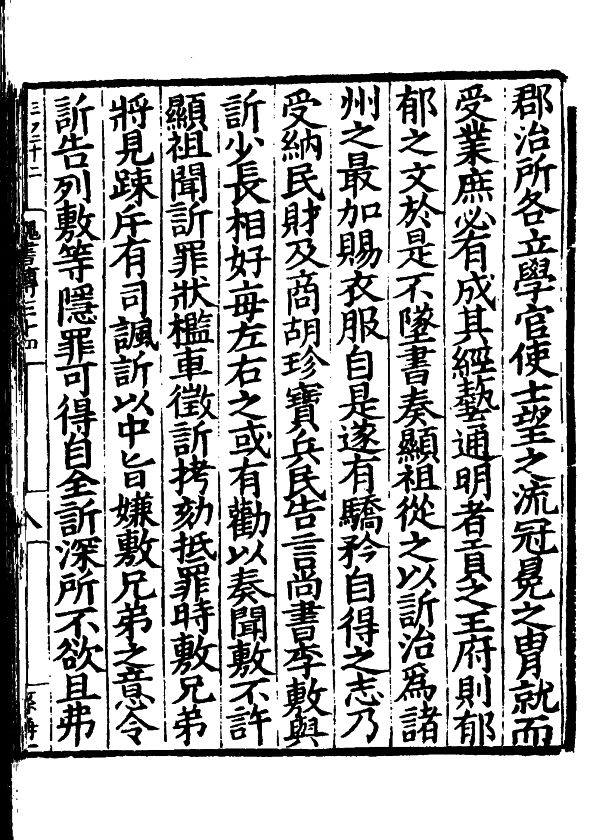 郡治所各立學官使士望之流冠冕之冑就而
受業庶必有成其經藝通明者貢之王府則郁
郁之文於是不墜書奏顯祖從之以訢治爲諸
州之最加賜衣服自是遂有驕矜自得之志乃
受納民財及商胡珍寶兵民告言尚書李敷與
訢少長相好每左右之或有勸以奏聞敷不許
顯祖聞訢罪狀檻車徵訢拷劾抵罪時敷兄弟
將見踈斥有司諷訢以中旨嫌敷兄弟之意令
訢告列敷等隱罪可得自全訢深所不欲且弗
魏書傳三十四
八